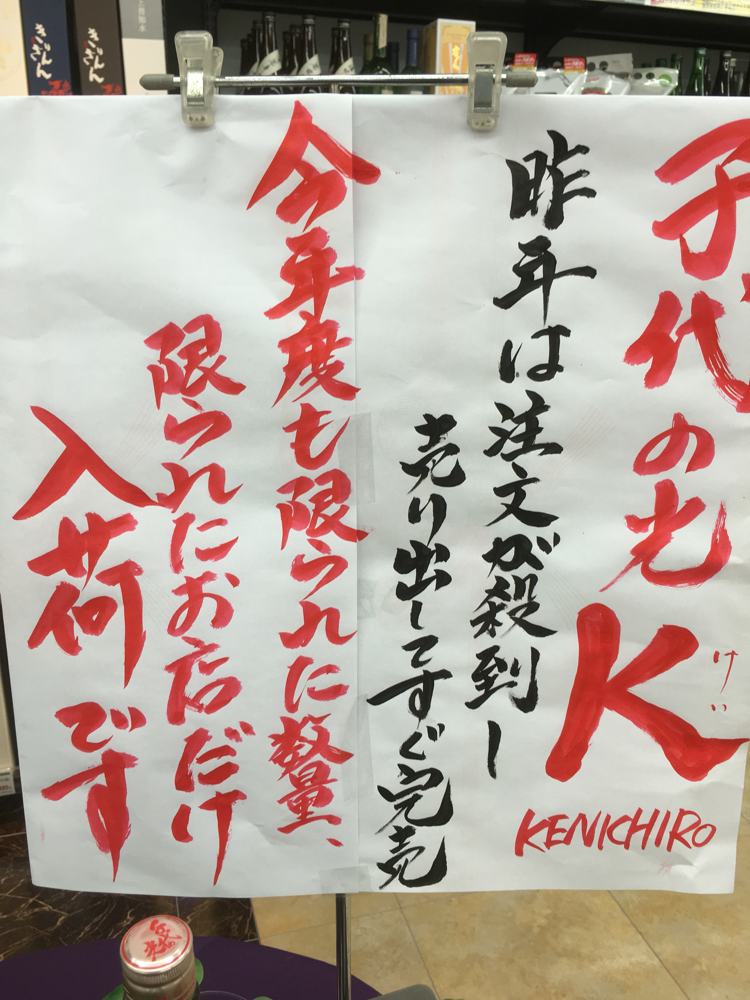 子代の光
K
けい
KENICHIRO
昨年は注文が殺到し
売り出してすぐ完売
今年度も限られた数量、
限られたお店だけ
入荷です
きんさん
きんさん